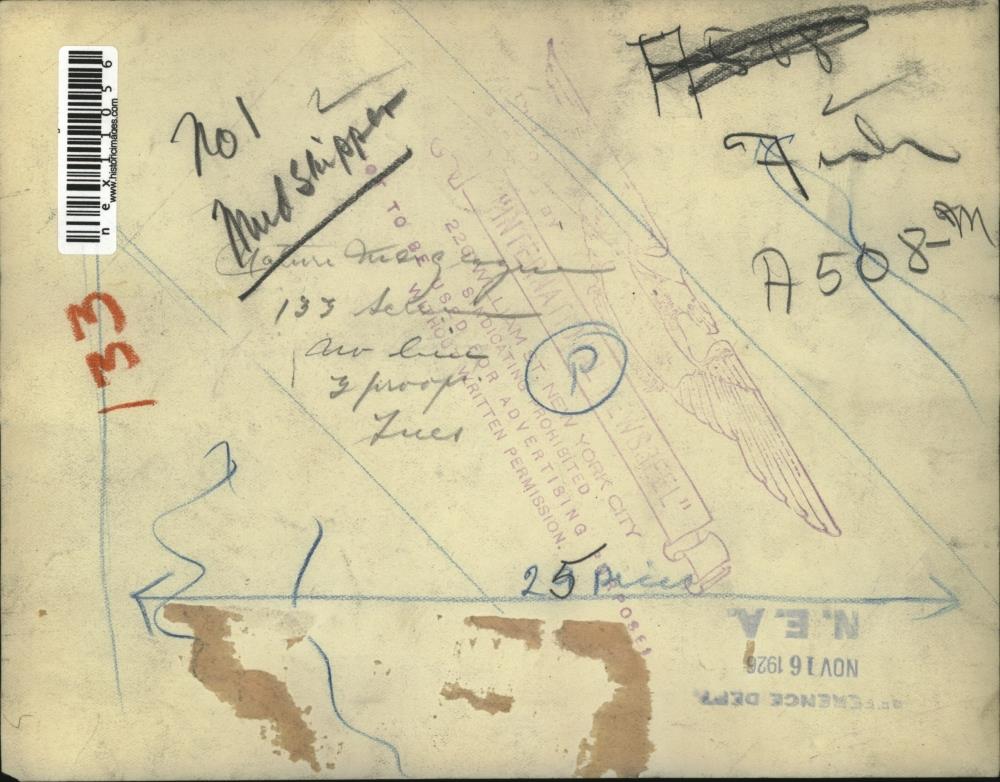 nex11056
www.historicimages.com
No 1
Mudskipper
Nature Magazine
133
3 proofs
Tues
133
Fish
A508-M
P
25 Picas
"INTERNATIONAL NEWSREEL"
226 WILLIAM ST. NEW YORK CITY
SYNDICATING PROHIBITED
NOT TO BE USED FOR ADVERTISING PURPOSES
WITHOUT WRITTEN PERMISSION.
N.E.A.
NOV 16 1926
REFERENCE DEPT.